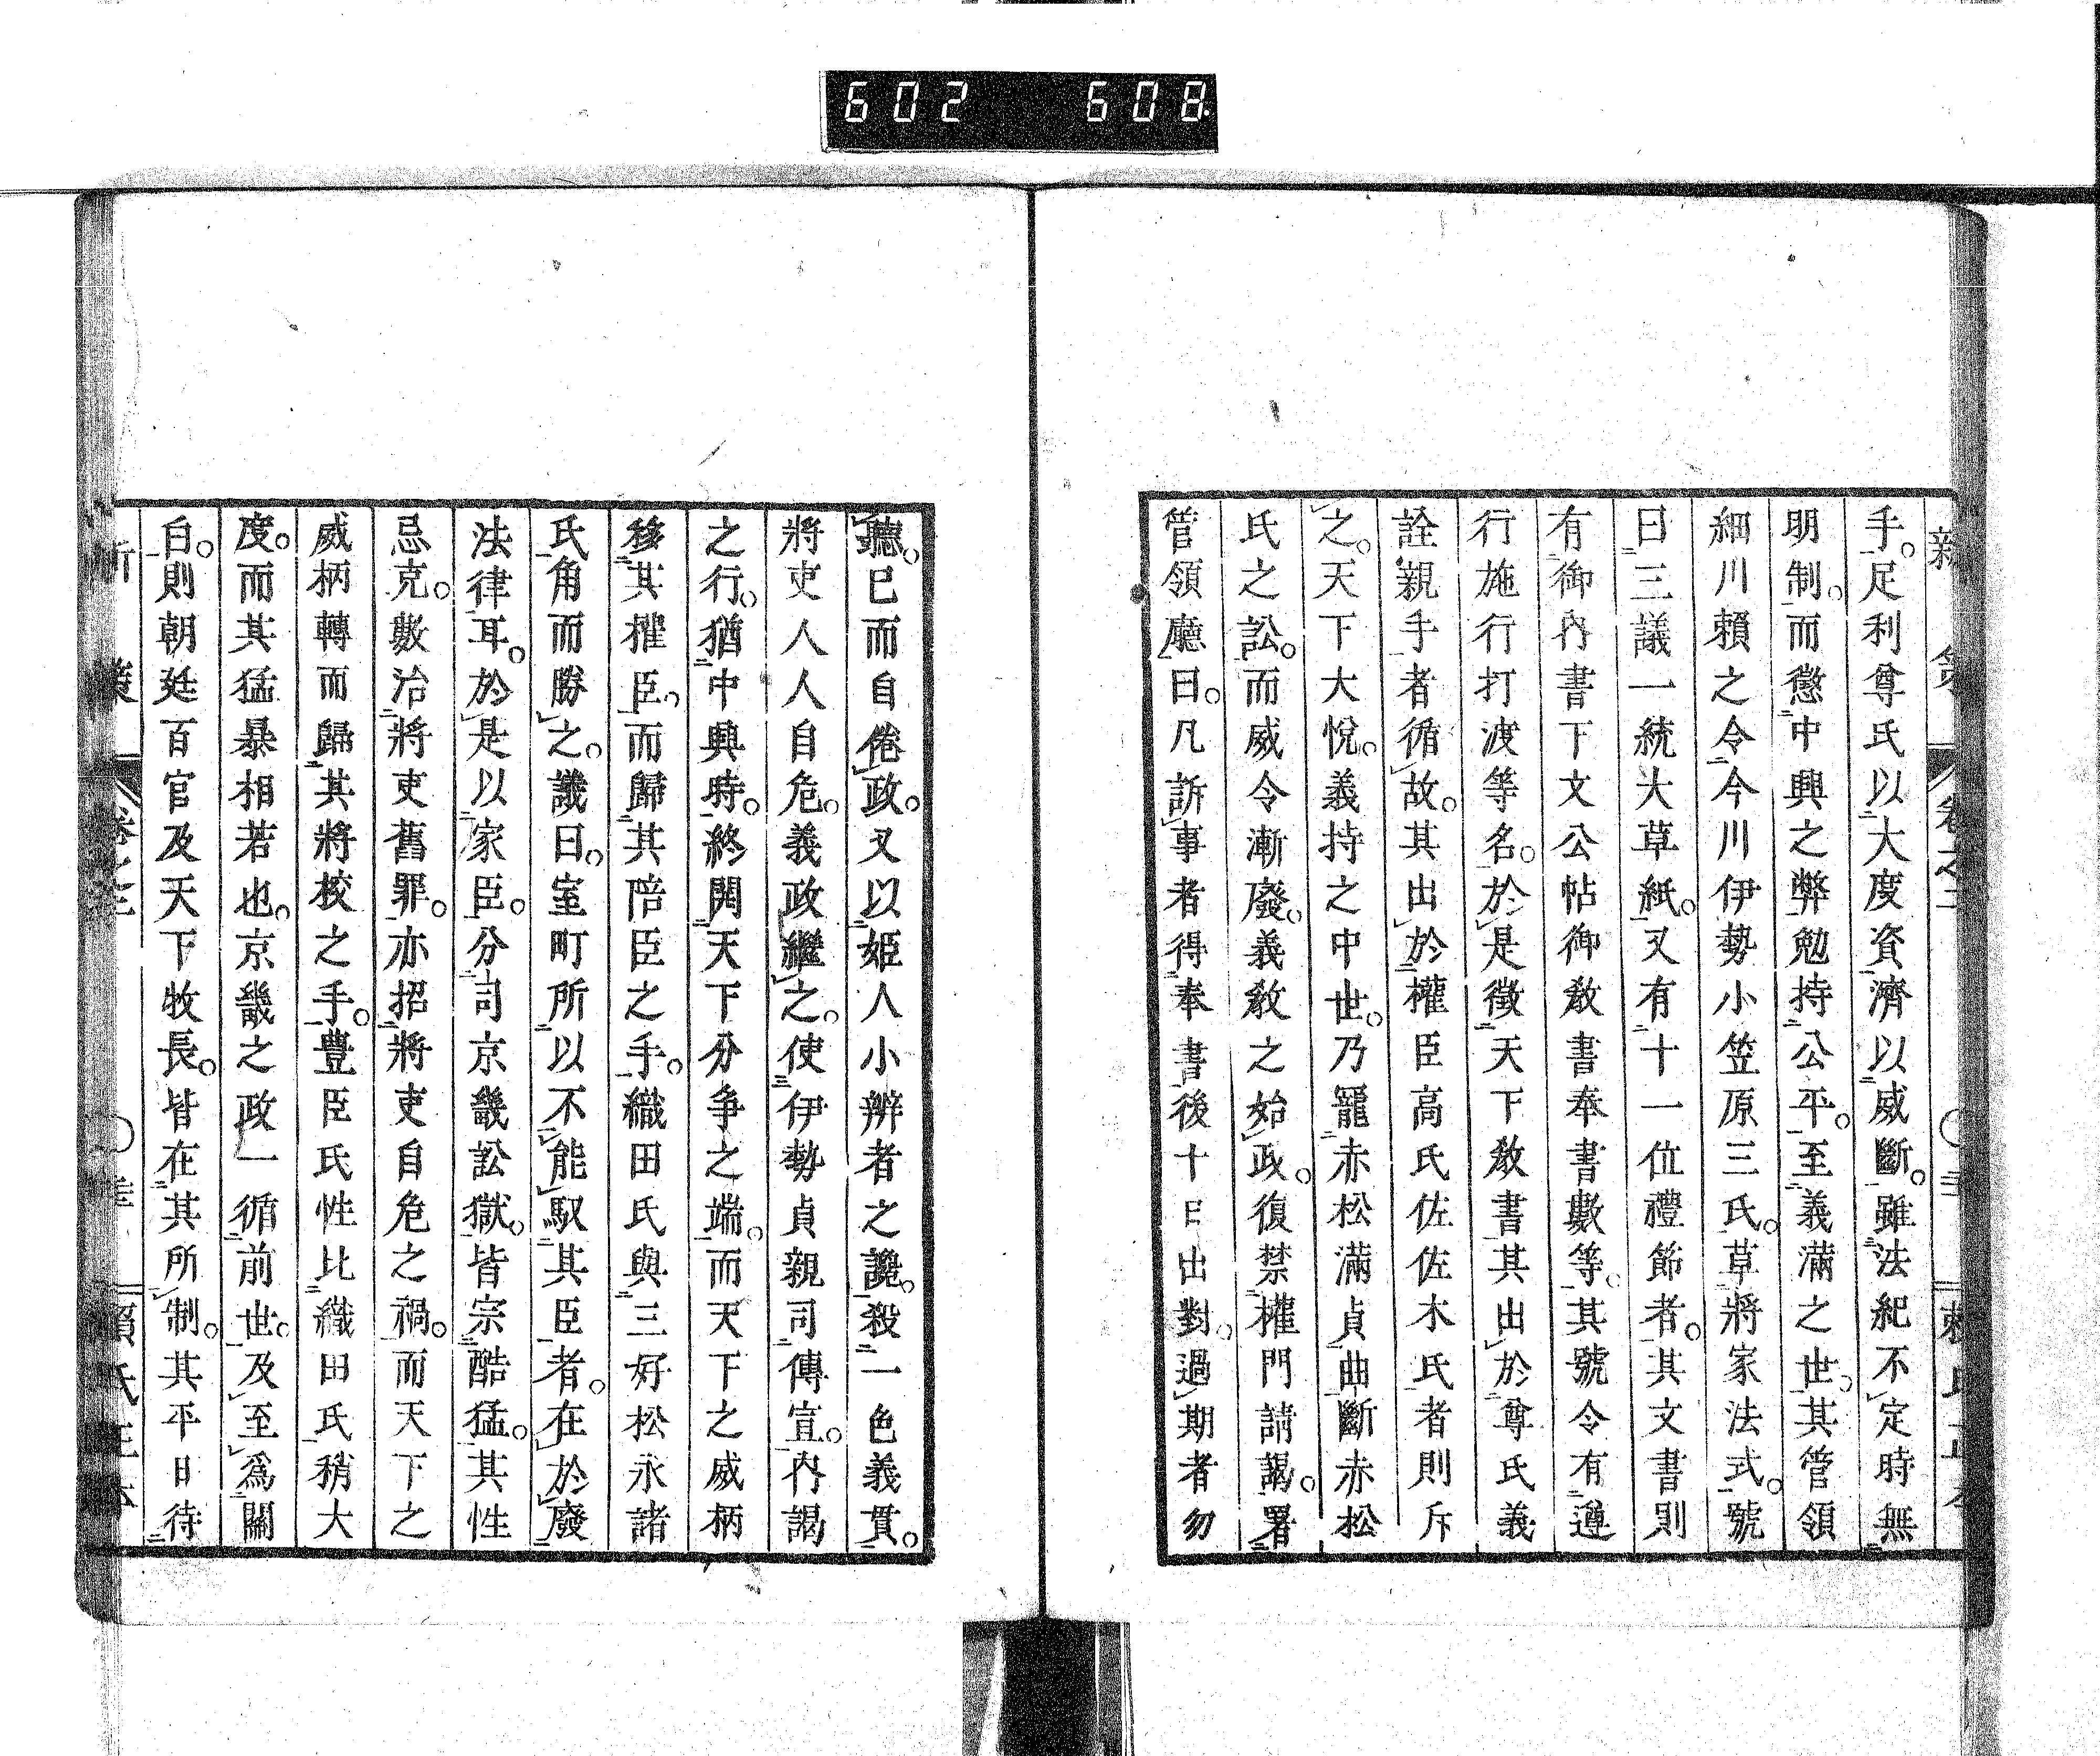 602 608
手。足利尊氏以大度資濟以威斷。雖法紀不定時無
明制。而懲中興之弊勉持公平。至義滿之世。其管領
細川賴之令今川伊勢小笠原三氏。草將家法式。號
曰三議一統大草紙。又有十一位禮節者。其文書則
有御內書下文公帖御敎書奉書數等。其號令有遵
行施行打渡等名。於是徵天下敎書其出於尊氏義
詮親手者循故。其出於權臣高氏佐佐木氏者則斥
之。天下大悅。義持之中世。乃寵赤松滿貞曲斷赤松
氏之訟。而威令漸廢。義敎之始政。復禁權門請謁。署
管領廳曰。凡訴事者得奉書後十日出對。過期者勿
聽。已而自倦政。又以姬人小辨者之讒。殺一色義貫。
將吏人人自危。義政繼之。使伊勢貞親司傳宣。內謁
之行。猶中興時。終開天下分爭之端。而天下之威柄
移其權臣。而歸其陪臣之手。織田氏與三好松永諸
氏角而勝之。議曰。室町所以不能馭其臣者。在於廢
法律耳。於是以家臣。分司京畿訟獄。皆宗酷猛。其性
忌克。數治將吏舊罪。亦招將吏自危之禍。而天下之
威柄轉而歸其將校之手。豐臣氏性比織田氏稍大
度。而其猛暴相若也。京畿之政一循前世。及至爲關
白。則朝廷百官及天下牧長。皆在其所制。其平日待